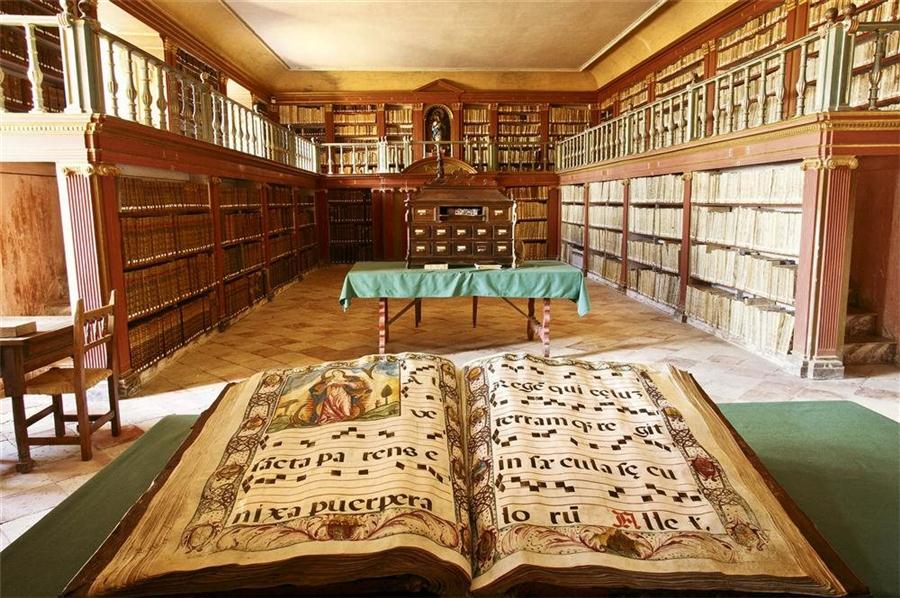 Sal
ve
sācta parens e
nixa puerpera
regē qui cęluȝ
terramqȝ re git
in sæcula sęcu
lorū Allet.